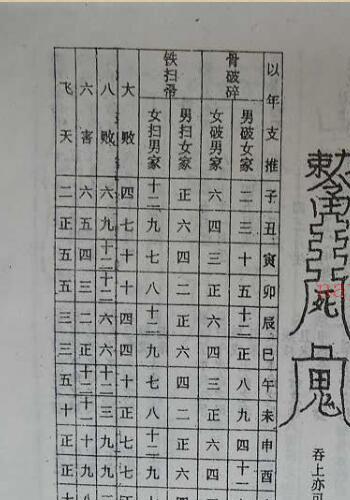 以年支推子丑寅卯辰巳午未申酉
骨破碎
男破女家二三十五十二正八九四十二
女破男家六四三正六四三正六四
铁扫帚
男扫女家正六四二正六四二正六
女扫男家十二九七八十二九七八十二九
大败四七十十四四十七七七
八败六九十二十二六六十二三九九
六害六五四三二正十二十一十九
飞天二正五五三三五十正正
死
鬼
吞上亦可